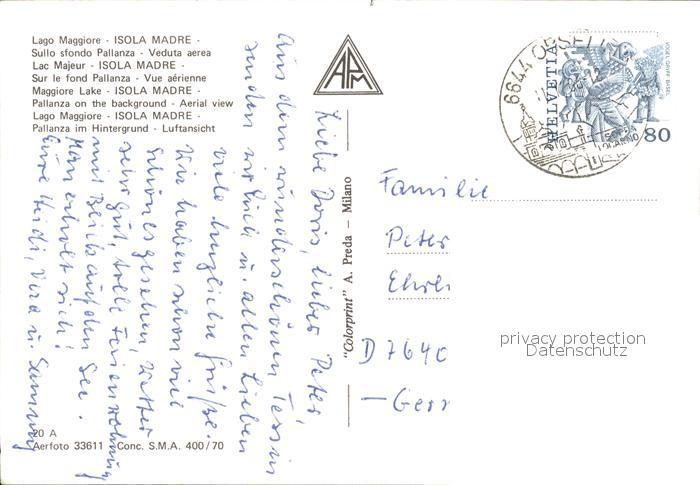 Lago Maggiore - ISOLA MADRE -
Sullo sfondo Pallanza - Veduta aerea
Lac Majeur - ISOLA MADRE -
Sur le fond Pallanza - Vue aérienne
Maggiore Lake - ISOLA MADRE -
Pallanza on the background - Aerial view
Lago Maggiore - ISOLA MADRE -
Pallanza im Hintergrund - Luftansicht
APM
"Colorprint" A. Preda — Milano
Liebe Doris, lieber Peter,
aus dem wunderschönen Tessin
senden wir Euch u. allen Lieben
viele herzliche Grüße.
Wir haben schon viel
Schönes gesehen, Wetter
sehr gut, tolle Ferienwohnung
mit Blick auf den See.
Man erholt sich!
Eure Heidi, Vera u.
20 A
Aerfoto 33611 - Conc. S.M.A. 400/70
6644 ORSELINA
SOPRA
LOCARNO
HELVETIA
VOGEL GRYFF BASEL
80
Familie
Peter
D 764
privacy protection
Datenschutz